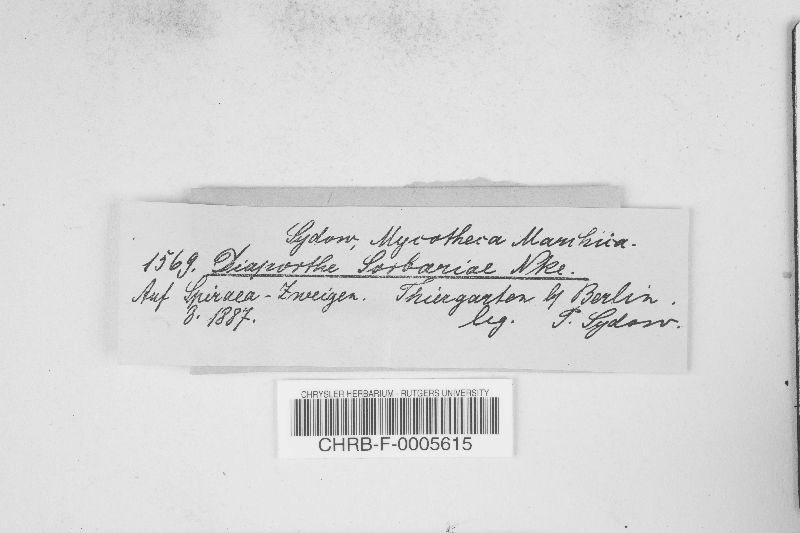 Sydow, Mycotheca Marchica.
1569. Diaporthe Sorbariae Nke.
Auf Spiraea-Zweigen. Thiergarten b/ Berlin.
3. 1887. leg. P. Sydow.
CHRYSLER HERBARIUM - RUTGERS UNIVERSITY
CHRB-F-0005615